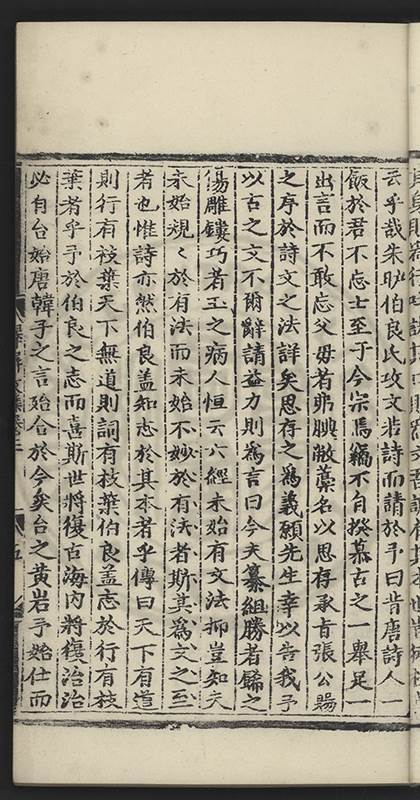 云乎哉朱昀伯良氏攻文若詩而請於予曰昔唐詩人一
飯於君不忘士至于今宗焉竊不自揆慕古之一舉足一
出言而不敢忘父母者弼腆敝藁名以思存承旨張公賜
之序於詩文之法詳矣思存之為義願先生幸以告我予
以古之文不爾辭請益力則為言曰今夫纂組勝者綈之
傷雕鏤巧者玉之病人恒云六經未始有文法抑豈知夫
未始規々於有法而未始不妙於有法者斯其為文之至
者也惟詩亦然伯良蓋知志於其本者乎傳曰天下有道
則行有枝葉天下無道則詞有枝葉伯良蓋志於行有枝
葉者乎予於伯良之志而喜斯世將復古海內將復治治
必自台始唐韓子之言殆合於今矣台之黃岩予始仕而
五